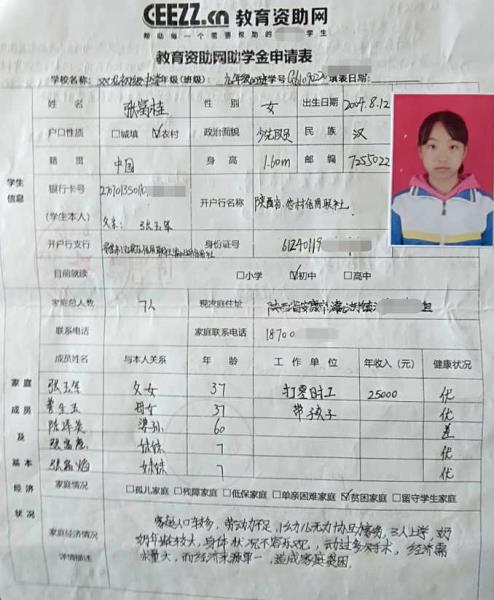 CEEZZ.cn 教育资助网
帮助每一个需要帮助的 学生
教育资助网助学金申请表
学校名称: 初级中学 年级(班级): 九年级 学号 填表日期:
姓名 张富桂 性别 女 出生日期 2004.8.12
户口性质 □城镇 ☑农村 政治面貌 少先队员 民族 汉
学生信息
籍贯 中国 身高 1.60m 邮编 7255022
银行卡号 开户行名称 陕西省农村信用联社
(学生本人) 父亲: 张玉军
开户行支行 身份证号 61240119
目前就读 □小学 ☑初中 □高中
家庭总人数 7人 现家庭住址 陕西省安康市
联系电话 家庭联系电话 18700
家庭成员及基本经济状况
成员姓名 与本人关系 年龄 工作单位 年收入(元) 健康状况
张玉军 父女 37 打零时工 25000 优
母女 37 带孩子 优
陈泽英 婆孙 60 差
妹妹 7 优
张富焰 妹妹 7 优
家庭情况 □孤儿家庭 □残障家庭 □低保家庭 □单亲困难家庭 ☑贫困家庭 □留守学生家庭
家庭经济情况详情描述
家庭人口较多,劳动力不足,幼儿无力协助务,三人上学,奶
奶年龄较大,身体状况不容乐观,动过多次手术,经济需
求量大,而经济来源单一,造成家庭贫困.